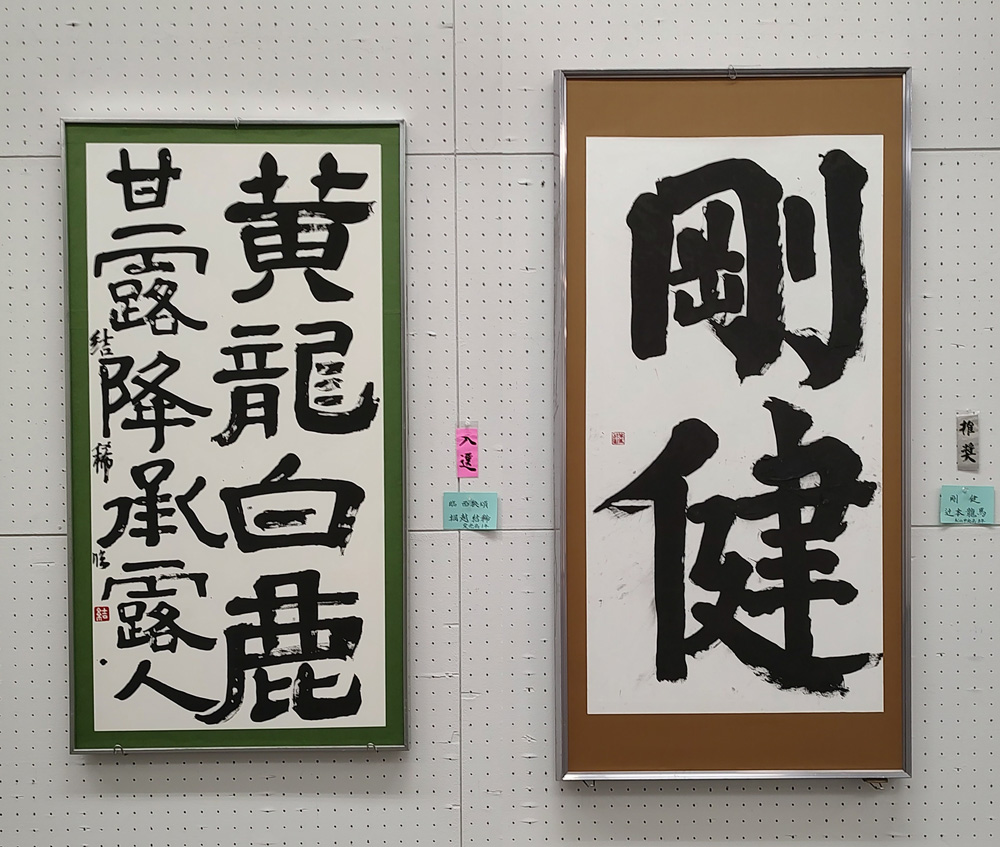 黄龍白鹿
甘露降承露人
結稀臨
結
入選
臨 西狹頌
堀越結稀
剛健
推奨
剛健
辻本龍馬